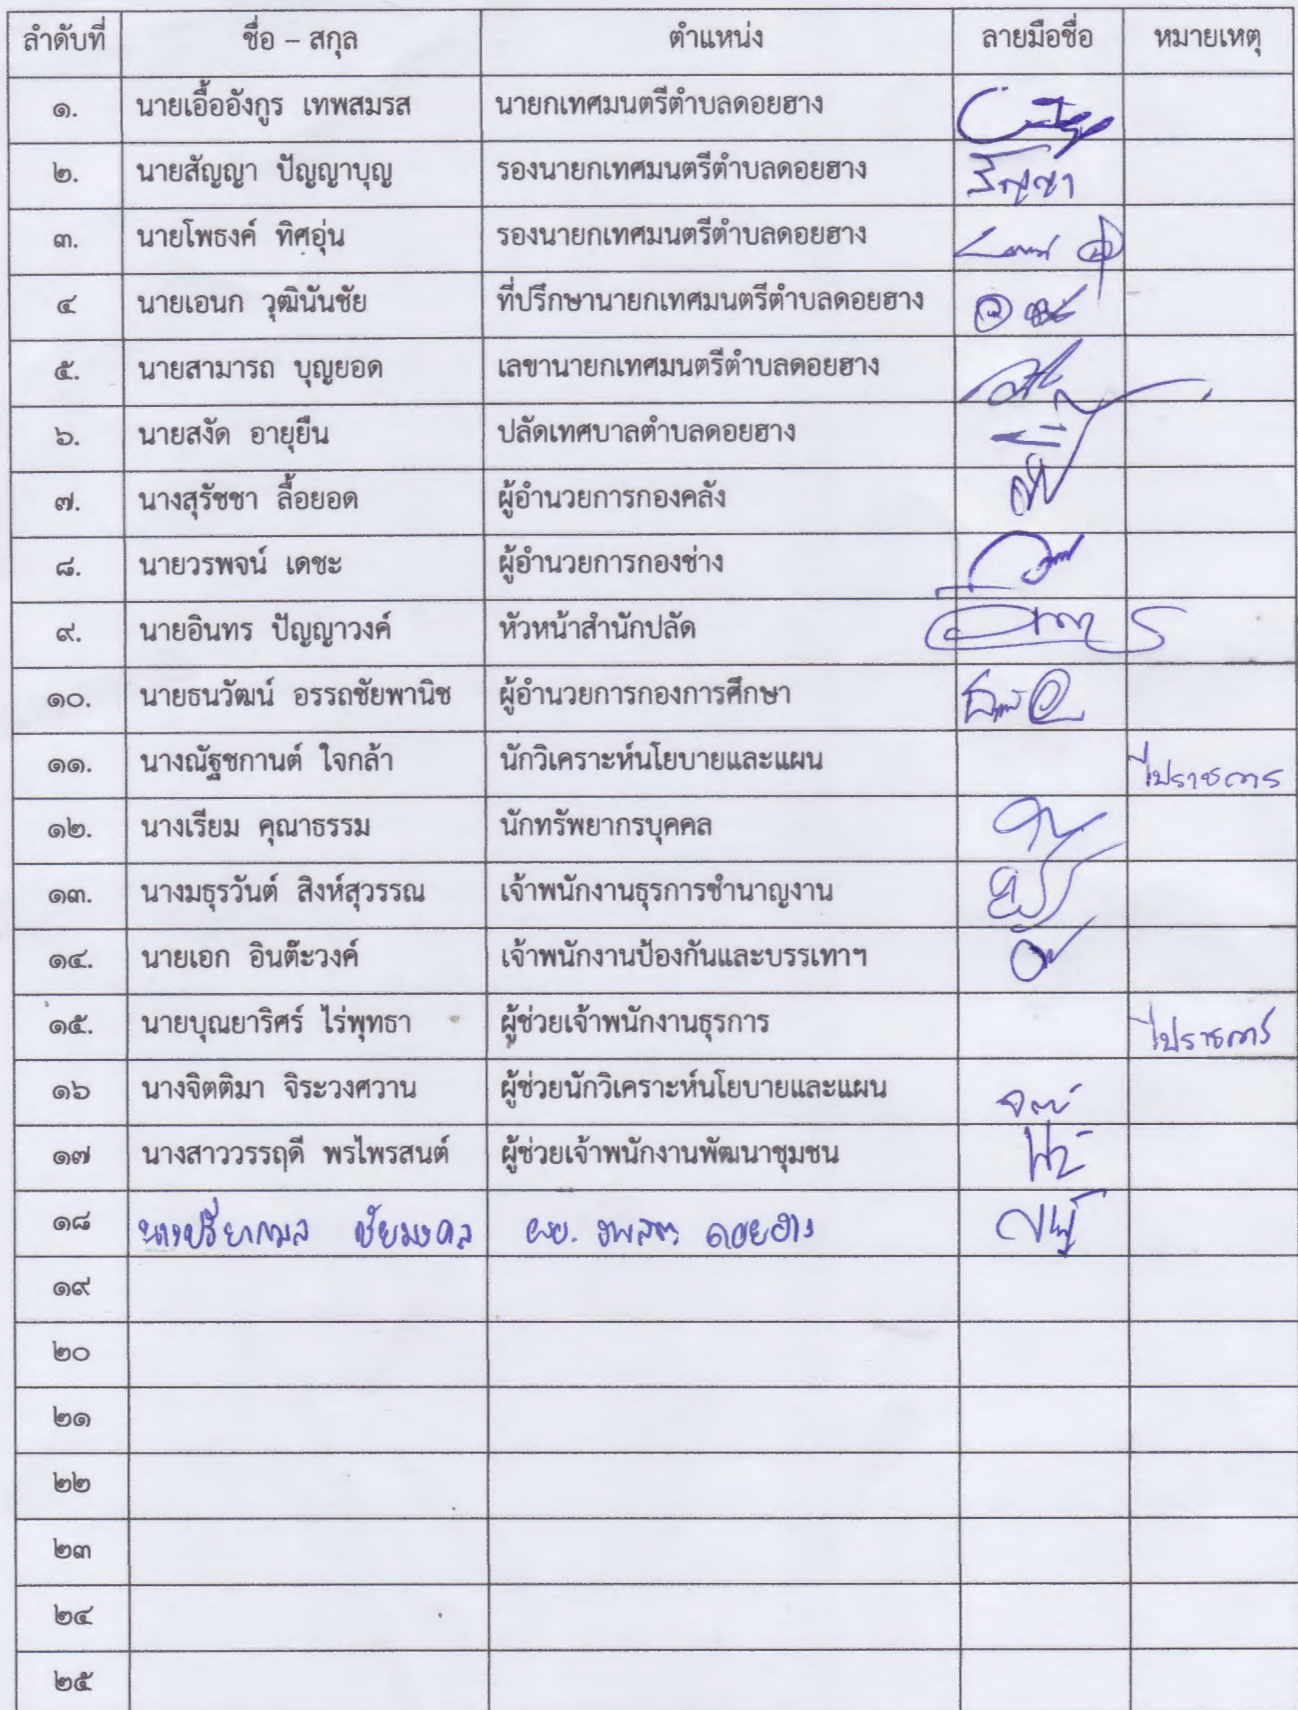 ลำดับที่ ชื่อ – สกุล ตำแหน่ง ลายมือชื่อ หมายเหตุ
๑. นายเอื้ออังกูร เทพสมรส นายกเทศมนตรีตำบลดอยฮาง
๒. นายสัญญา ปัญญาบุญ รองนายกเทศมนตรีตำบลดอยฮาง สัญญา
๓. นายโพธงค์ ทิศอุ่น รองนายกเทศมนตรีตำบลดอยฮาง
๔ นายเอนก วุฒินันชัย ที่ปรึกษานายกเทศมนตรีตำบลดอยฮาง
๕. นายสามารถ บุญยอด เลขานายกเทศมนตรีตำบลดอยฮาง
๖. นายสงัด อายุยืน ปลัดเทศบาลตำบลดอยฮาง
๗. นางสุรัชชา ลื้อยอด ผู้อำนวยการกองคลัง
๘. นายวรพจน์ เดชะ ผู้อำนวยการกองช่าง
๙. นายอินทร ปัญญาวงค์ หัวหน้าสำนักปลัด
๑๐. นายธนวัฒน์ อรรถชัยพานิช ผู้อำนวยการกองการศึกษา
๑๑. นางณัฐชกานต์ ใจกล้า นักวิเคราะห์นโยบายและแผน ไปราชการ
๑๒. นางเรียม คุณาธรรม นักทรัพยากรบุคคล
๑๓. นางมธุรวันต์ สิงห์สุวรรณ เจ้าพนักงานธุรการชำนาญงาน
๑๔. นายเอก อินต๊ะวงค์ เจ้าพนักงานป้องกันและบรรเทาฯ
๑๕. นายบุณยาริศร์ ไร่พุทธา ผู้ช่วยเจ้าพนักงานธุรการ ไปราชการ
๑๖ นางจิตติมา จิระวงศวาน ผู้ช่วยนักวิเคราะห์นโยบายและแผน
๑๗ นางสาววรรฤดี พรไพรสนต์ ผู้ช่วยเจ้าพนักงานพัฒนาชุมชน
๑๘ นางปรียากมล ชัยมงคล ผอ. รพสต ดอยฮาง
๑๙
๒๐
๒๑
๒๒
๒๓
๒๔
๒๕